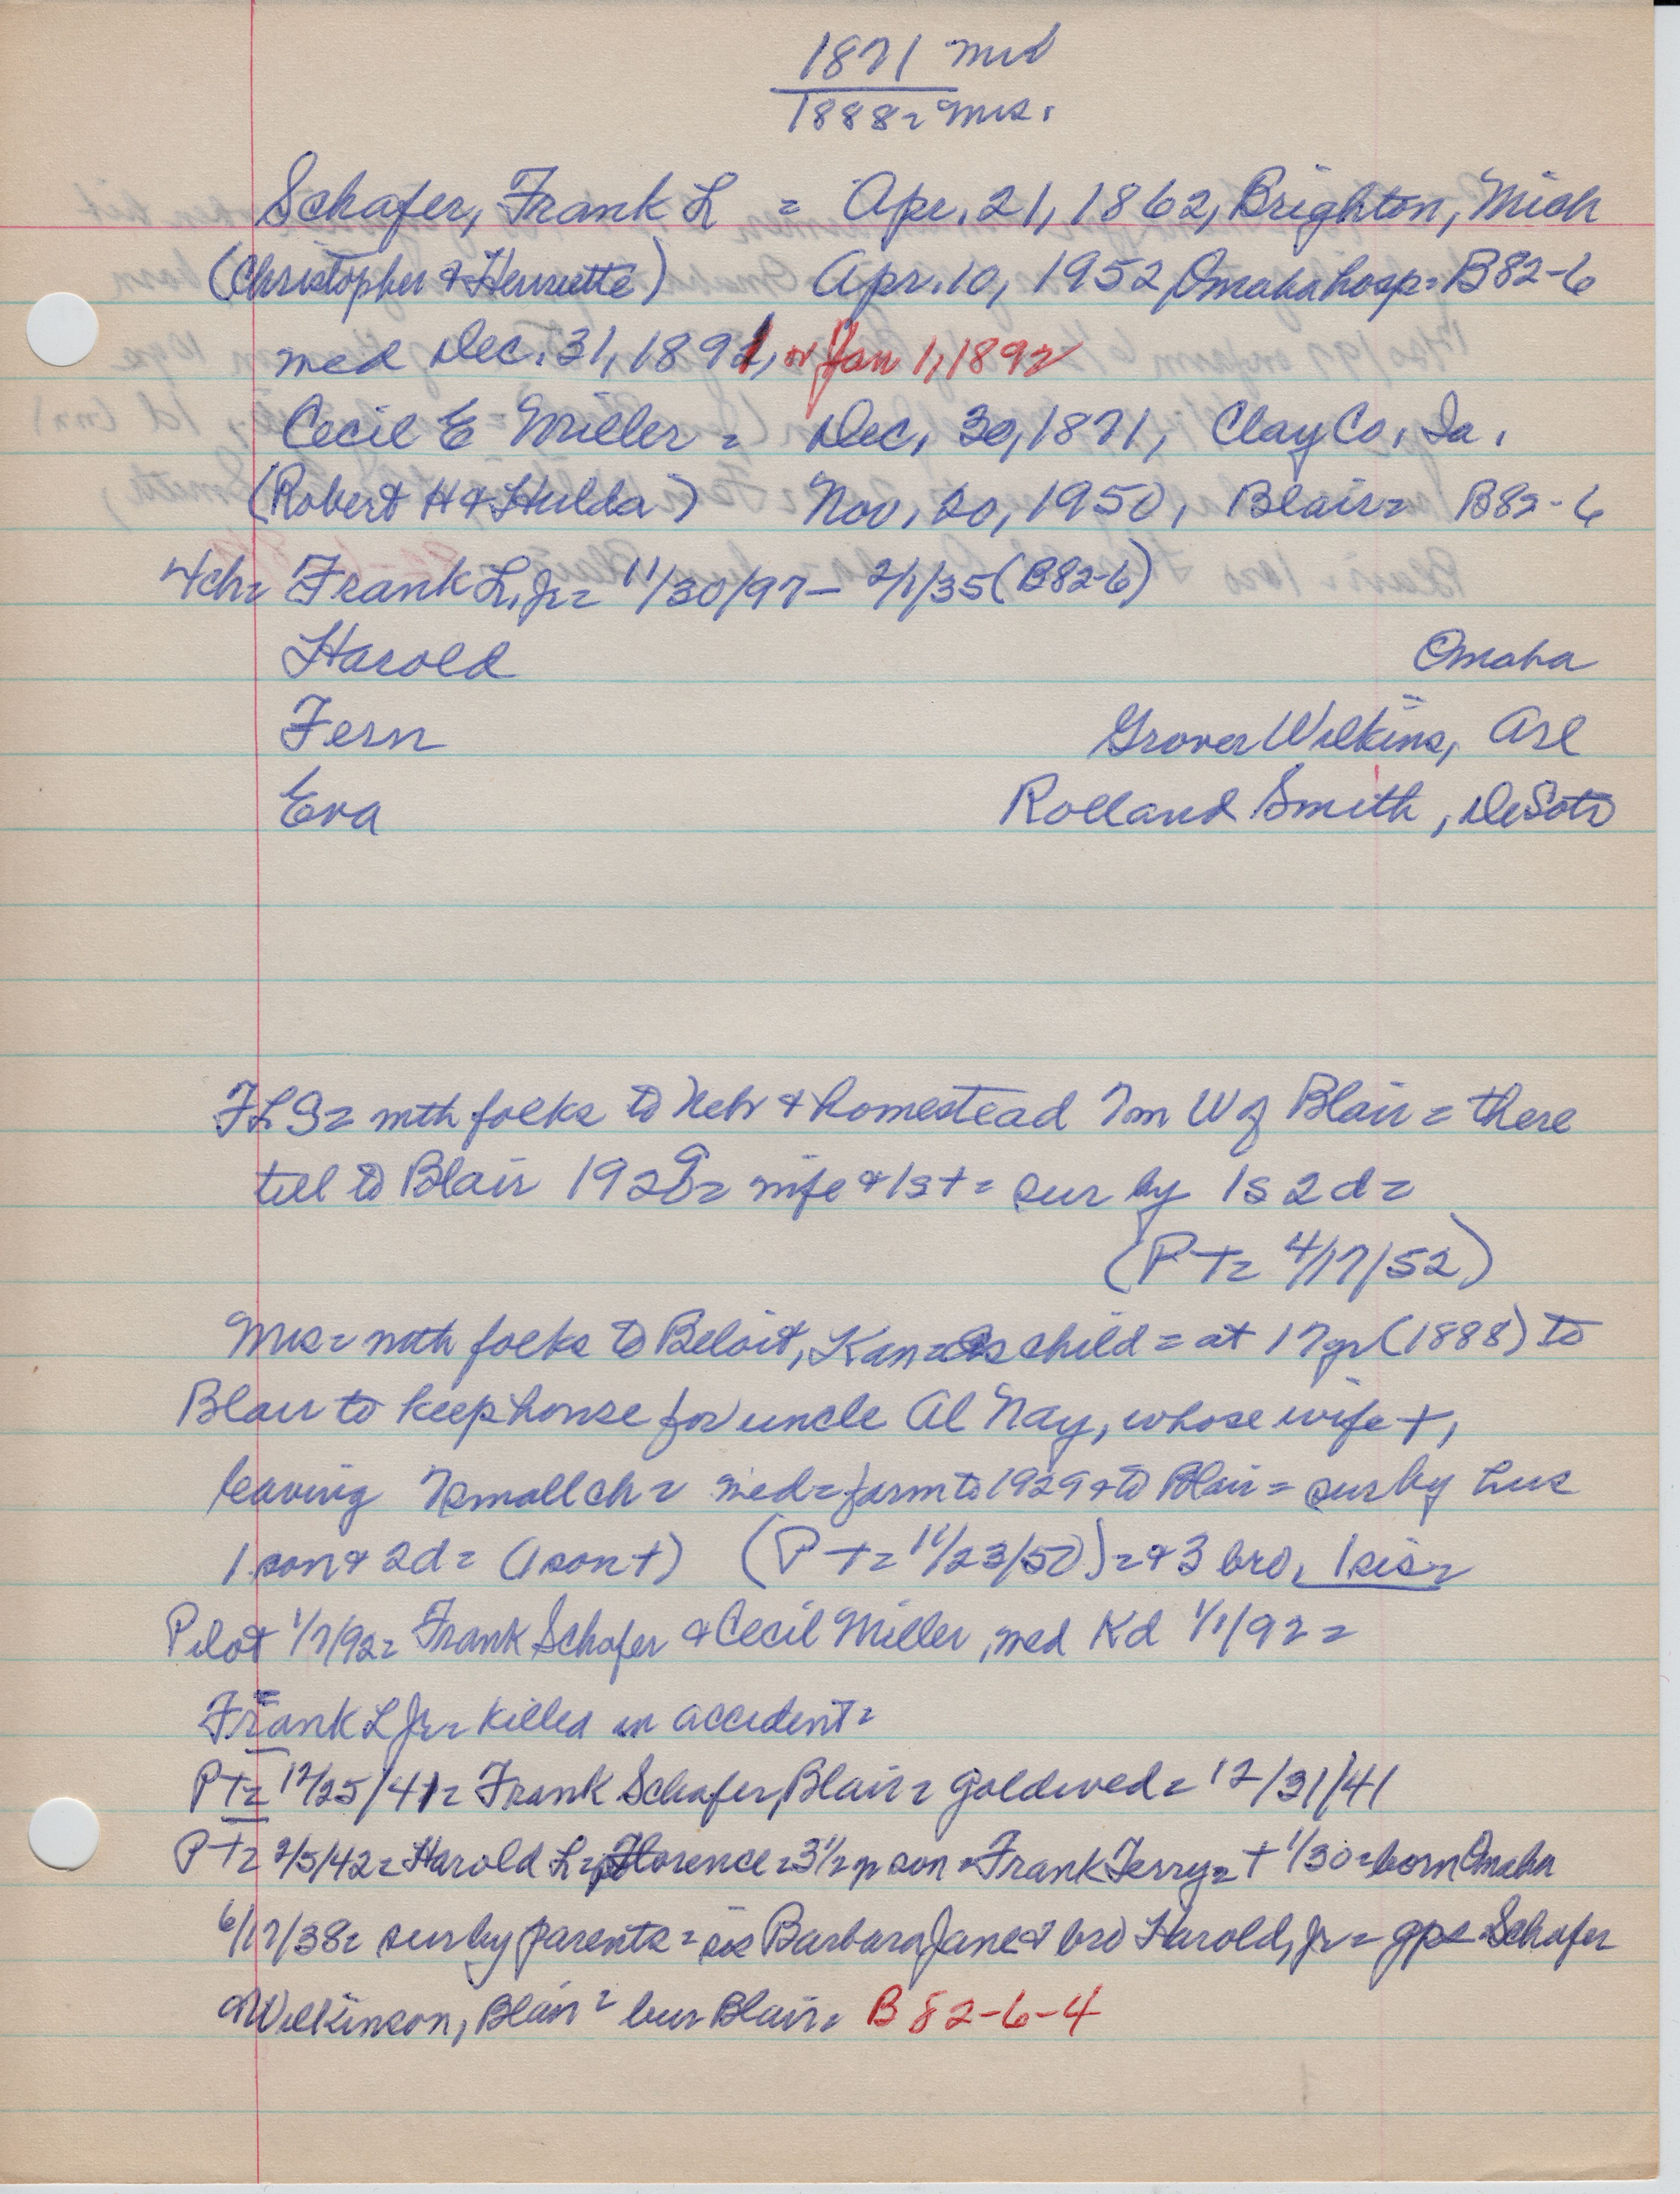 1871 mid
1888 = Mrs.
Schafer, Frank L = Apr. 21, 1862, Brighton, Mich
(Christopher & Henriette) Apr. 10, 1952, Omaha hosp = B82-6
med Dec. 31, 1891, or Jan 1, 1892
Cecil E Miller = Dec. 30, 1871, Clay Co, Ia.
(Robert H & Hulda) Nov. 20, 1950, Blair = B82-6
4ch = Frank L, Jr = 11/30/97 - 2/1/35 (B82-6)
Harold Omaha
Fern Grover Wilkins, Arl
Eva Rolland Smith, DeSoto
FLS = with folks to Nebr & homestead 7m W of Blair = there
till to Blair 1929 = wife & 1s + = sur by 1s 2d =
(PT = 4/17/52)
Mrs = with folks to Beloit, Kan = as child = at 17yr (1888) to
Blair to keep house for uncle Al Nay, whose wife +,
leaving 7 small ch = med = farm to 1929 & to Blair = sur by hus
1 son & 2d = (1 son +) (PT = 11/23/50) = & 3 bro, 1 sis =
Pilot 1/7/92 = Frank Schafer & Cecil Miller, med Kd 1/1/92 =
Frank L Jr = killed in accident =
PT = 12/25/41 = Frank Schafer, Blair = gold wed = 12/31/41
PT = 2/5/42 = Harold L = Florence = 3 1/2 yr son = Frank Terry = + 1/30 = born Omaha
6/17/38 = sur by parents = sis Barbara Jane & bro Harold, Jr = gps Schafer
& Wilkinson, Blair = bur Blair = B 82-6-4